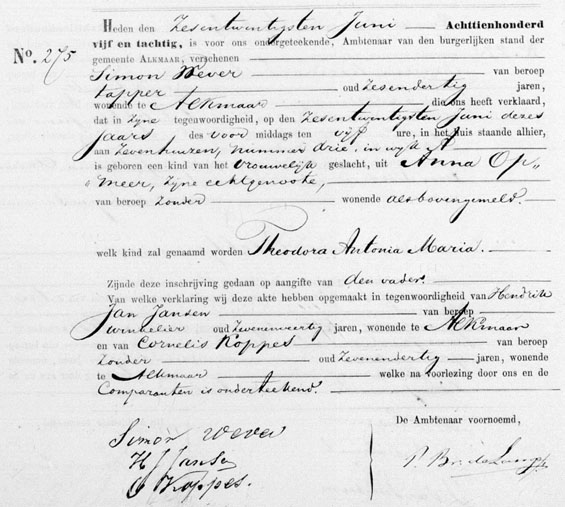 Heden den Zesentwintigsten Juni Achttienhonderd
vijf en tachtig, is voor ons ondergeteekende, Ambtenaar van den burgerlijken stand der
No. 275
gemeente ALKMAAR, verschenen
Simon Wever van beroep
tapper oud Zesendertig jaren,
wonende te Alkmaar die ons heeft verklaard,
dat in Zijne tegenwoordigheid, op den Zesentwintigsten Juni dezes
Jaars des voor middags ten vijf ure, in het huis staande alhier,
aan Zevenhuizen, nummer drie, in wijk
is geboren een kind van het vrouwelijk geslacht, uit Anna Op„
„meer, Zijne echtgenoote,
van beroep Zonder wonende als bovengemeld.
welk kind zal genaamd worden Theodora Antonia Maria.
Zijnde deze inschrijving gedaan op aangifte van den vader.
Van welke verklaring wij deze akte hebben opgemaakt in tegenwoordigheid van Hendrik
Jan Jansen van beroep
winkelier oud Zevenenveertig jaren, wonende te Alkmaar
en van Cornelis Koppes van beroep
Zonder oud Zevenendertig jaren, wonende
te Alkmaar welke na voorlezing door ons en de
Comparanten is onderteekend.
De Ambtenaar voornoemd,
Simon Wever
H J Jansen
C Koppes.